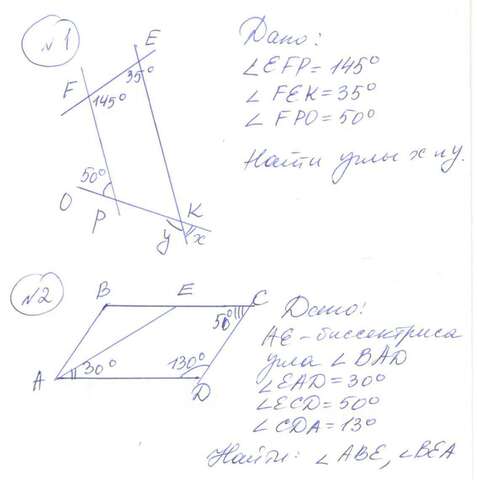 №1
E
35°
F
145°
50°
O
P
K
y
x
Дано:
∠EFP = 145°
∠FEK = 35°
∠FPO = 50°
Найти углы x и y.
№2
B
E
C
50°
A
30°
130°
D
Дано:
AE - биссектриса
угла ∠BAD
∠EAD = 30°
∠ECD = 50°
∠CDA = 13°
Найти: ∠ABE, ∠BEA